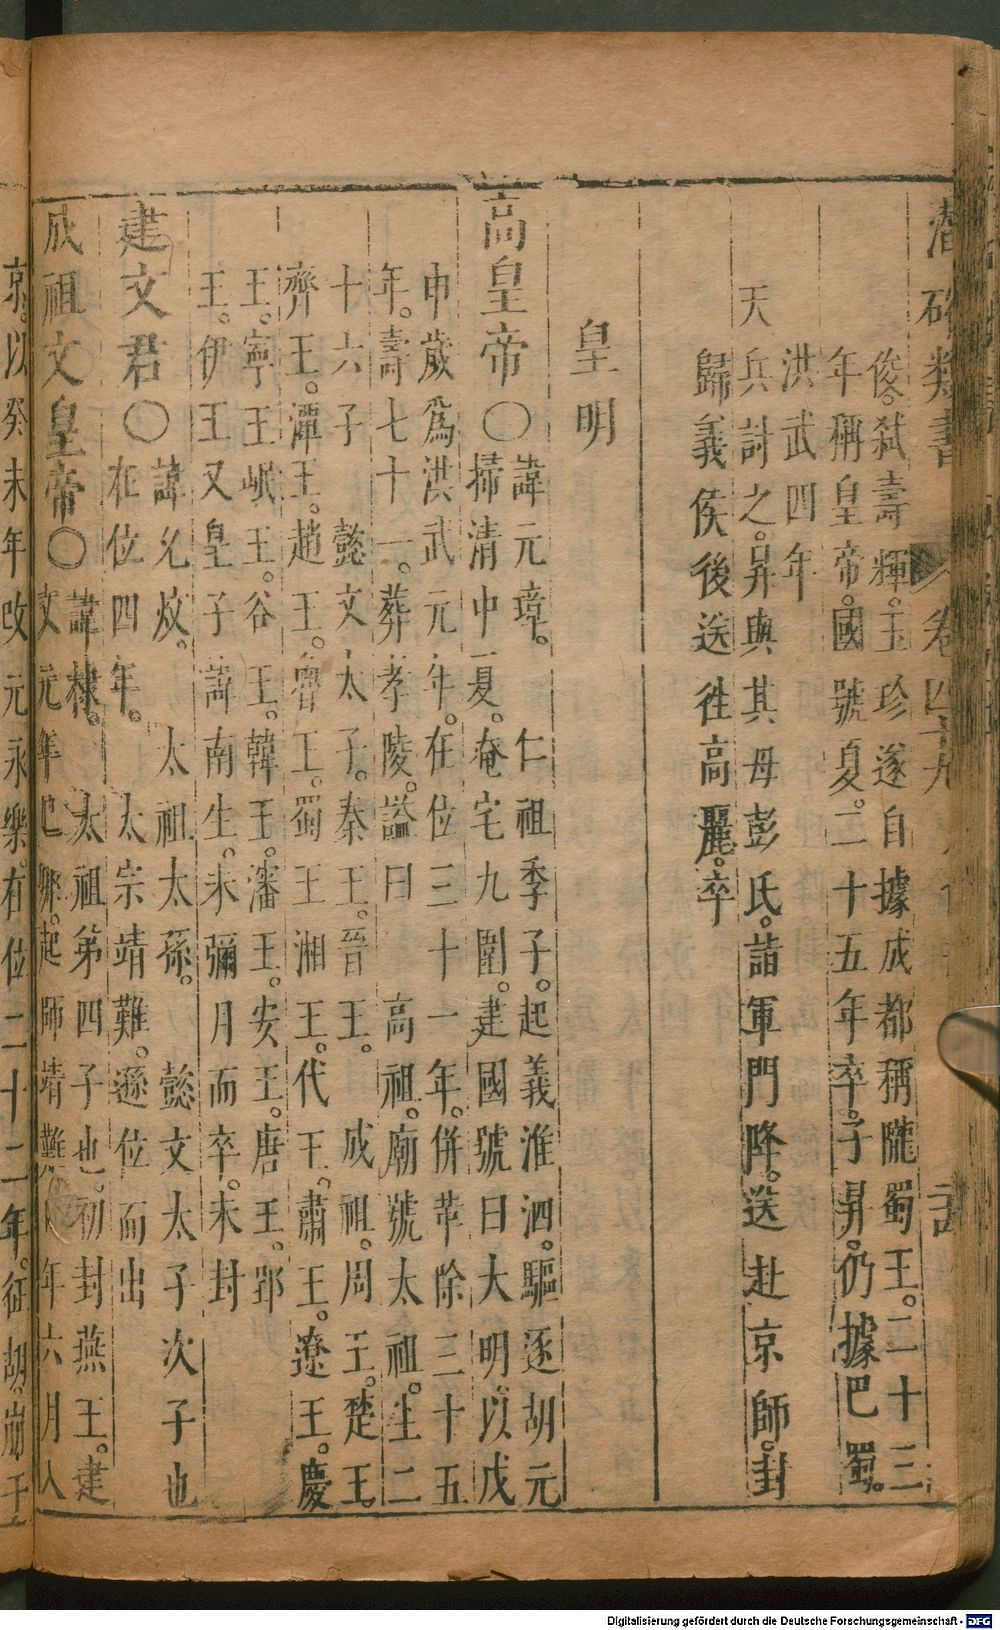 潛確類書 卷四十九
俊。弑壽輝。玉珍遂自據成都稱隴蜀王。二十三
年稱皇帝。國號夏。二十五年卒。子昇。仍據巴蜀。
洪武四年
天兵討之。昇與其母彭氏。詣軍門降。送赴京師。封
歸義侯後送徃高麗。卒
皇明
高皇帝〇諱元璋。仁祖季子。起義淮泗。驅逐胡元
掃清中夏。奄宅九圍。建國號曰大明。以戊
申歲爲洪武元年。在位三十一年。併革除三十五
年。壽七十一。葬孝陵。謚曰高祖。廟號太祖。生二
十六子懿文太子。秦王。晉王。成祖。周王。楚王。
齊王。潭王。趙王。魯王。蜀王湘王。代王。肅王。遼王。慶
王。寧王岷王。谷王。韓王。瀋王。安王。唐王。郢
王。伊王又皇子諱南生。未彌月而卒。未封
建文君〇諱允炆。太祖太孫。懿文太子次子也
在位四年。太宗靖難。遜位而出
成祖文皇帝〇諱棣。太祖第四子也。初封燕王。建
文元年己卯。起師靖難。年六月入
京。以癸未年改元永樂。在位二十二年。征胡。崩于
Digitalisierung gefördert durch die Deutsche Forschungsgemeinschaft - DFG